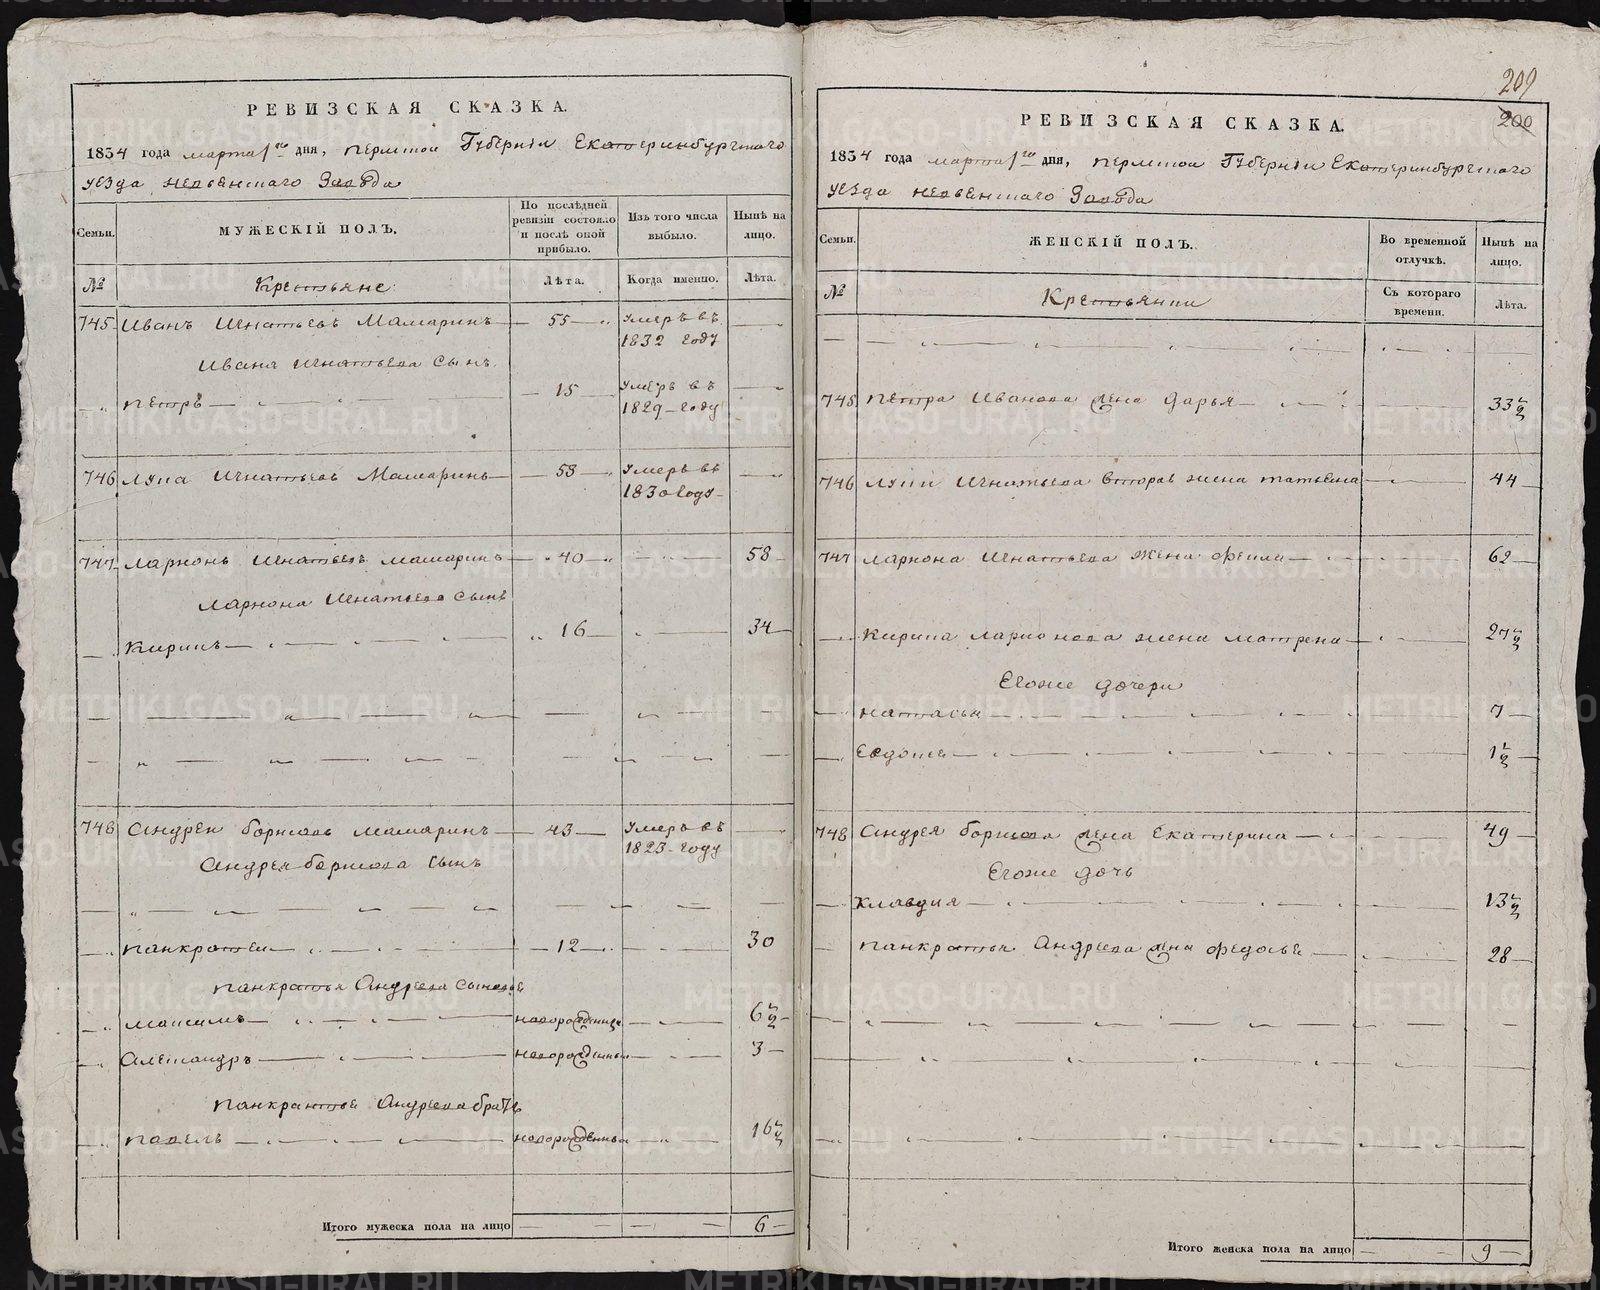 РЕВИЗСКАЯ СКАЗКА.
1834 года марта 1го дня, Пермской Губернии Екатеринбургского
уезда Невьянского Завода
Семьи.
МУЖЕСКІЙ ПОЛЪ.
По послѣдней ревизіи состояло и послѣ оной прибыло.
Изъ того числа выбыло.
Нынѣ на лицо.
№
Крестьяне
Лѣта.
Когда именно.
Лѣта.
745 Иванъ Игнатьевъ Мамаринъ 55 Умеръ въ 1832 году
Ивана Игнатьева сынъ
Петръ 15 Умеръ въ 1829 году
746 Лупа Игнатьевъ Мамаринъ 53 Умеръ въ 1830 году
747 Ларионъ Игнатьевъ Мамаринъ 40 58
Лариона Игнатьева сынъ
Кирилъ 16 34
748 Андрей Борисовъ Мамаринъ 43 Умеръ въ 1823 году
Андрея Борисова сынъ
Панкратей 12 30
Панкратья Андреева сыновья
Максимъ новорожденный 6 1/2
Александръ новорожденный 3
Панкратья Андреева братъ
Павелъ новорожденный 16 1/2
Итого мужеска пола на лицо 6
209
200
РЕВИЗСКАЯ СКАЗКА.
1834 года марта 1го дня, Пермской Губернии Екатеринбургского
уезда Невьянского Завода
Семьи.
ЖЕНСКІЙ ПОЛЪ.
Во временной отлучкѣ.
Нынѣ на лицо.
№
Крестьянки
Съ котораго времени.
Лѣта.
745 Петра Иванова жена Дарья 33 1/2
746 Лупы Игнатьева вторая жена Татьяна 44
747 Лариона Игнатьева жена Фекла 62
Кирила Ларионова жена Матрена 27 1/2
Егоже дочери
Наталья 7
Евдокия 1 1/2
748 Андрея Борисова жена Екатерина 49
Егоже дочь
Клавдия 13 1/2
Панкратья Андреева жена Федосья 28
Итого женска пола на лицо 9
METRIKI.GASO-URAL.RU